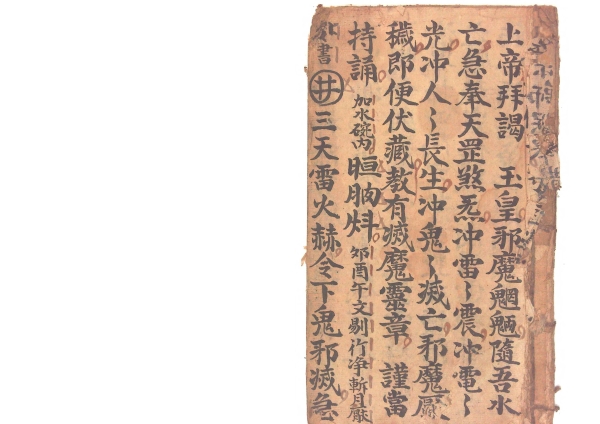 上帝拜謁 玉皇邪魔魍魎隨吾水
亡急奉天罡煞炁冲雷〻震冲電〻
光冲人〻長生冲鬼〻滅亡邪魔
穢即便伏藏教有滅魔靈章 謹當
持誦 加水碗内 卯酉午文剔
書 井 三天雷火赫令下鬼邪滅急